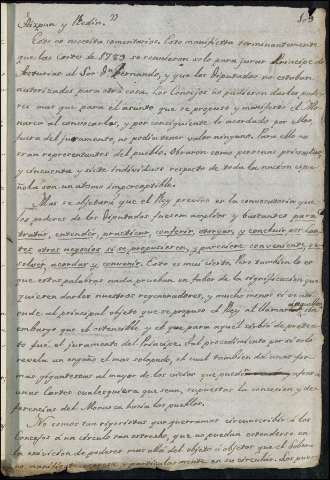 Axpun y Redin.")
Esto no necesita comentarios. Esto manifiesta terminantemente
que las Cortes de 1789 se reunieron solo para jurar Principe de
Asturias al Sor. Dn. Fernando, y que los Diputados no estaban
autorizados para otra cosa. Los Concejos no pudieron darles pode-
res mas que para el asunto que se propuso y manifestó el Mo-
narca al convocarlos, y por consiguiente lo acordado por ellos,
fuera del juramento, no podia tener valor ninguno. Para ello no
eran representantes del pueblo. Obraron como personas privadas,
y cincuenta y siete individuos respecto de toda la nacion espa-
ñola son un atomo imperceptible.
Mas se objetará que el Rey previno en la convocatoria que
los poderes de los Diputados fuesen amplios y bastantes para
tratar, entender, practicar, conferir, otorgar, y concluir por Cor-
tes otros negocios si se propusieren, y pareciere conveniente re-
solver, acordar y convenir. Esto es muy cierto. Pero tambien lo es
que estas palabras nada prueban en fabor de la significacion que
quieren darles nuestros regeneradores, y mucho menos si se
al principal objeto que se propuso el Rey al llamar
embargo que el ostensible y el que para aquel sirbió de pretes-
to fue el juramento del Principe. Tal procedimiento por si solo
revela un engaño el mas solapado, el cual tambien dá unas for-
mas gigantescas al mayor de los vicios que pueden
unas Cortes cualesquiera que sean, supuestas la concesion y de-
ferencias del Monarca hacia los pueblos.
No somos tan rigoristas que querramos circunscribir á los
Concejos á un circulo tan estrecho, que no puedan estenderse en
la de poderes mas allá del objeto ú objetos que el Sobera-
no manifieste espresa y particularmente en su circular. Los pue